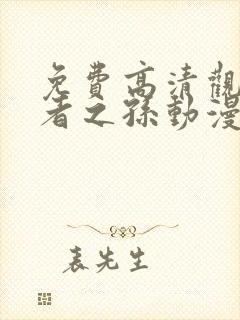 免費高清觀
者之孫動漫
表先生